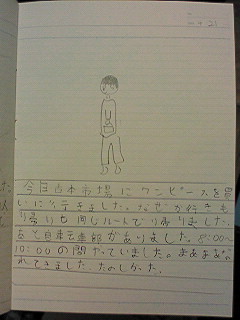 今日古本市場にワンピースを買
いに行きました。なぜか行きも
帰りも同じルートで帰りました。
あと自車
部がありました。8:00〜
10:00の間やっていました。まあまあ
れてきました。たのしかった。